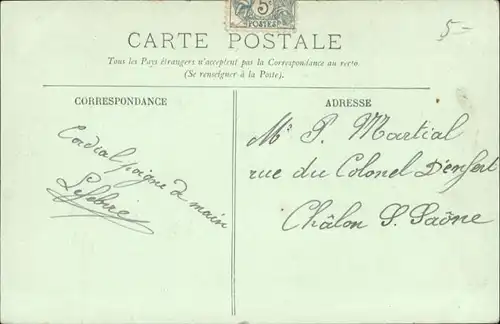 5c
POSTES
5-
CARTE POSTALE
Tous les Pays étrangers n'acceptent pas la Correspondance au recto.
(Se renseigner à la Poste).
CORRESPONDANCE
Cordial poignée de main
Lefebvre
ADRESSE
Mr P. Martial
rue du Colonel Denfert
Châlon S. Saône